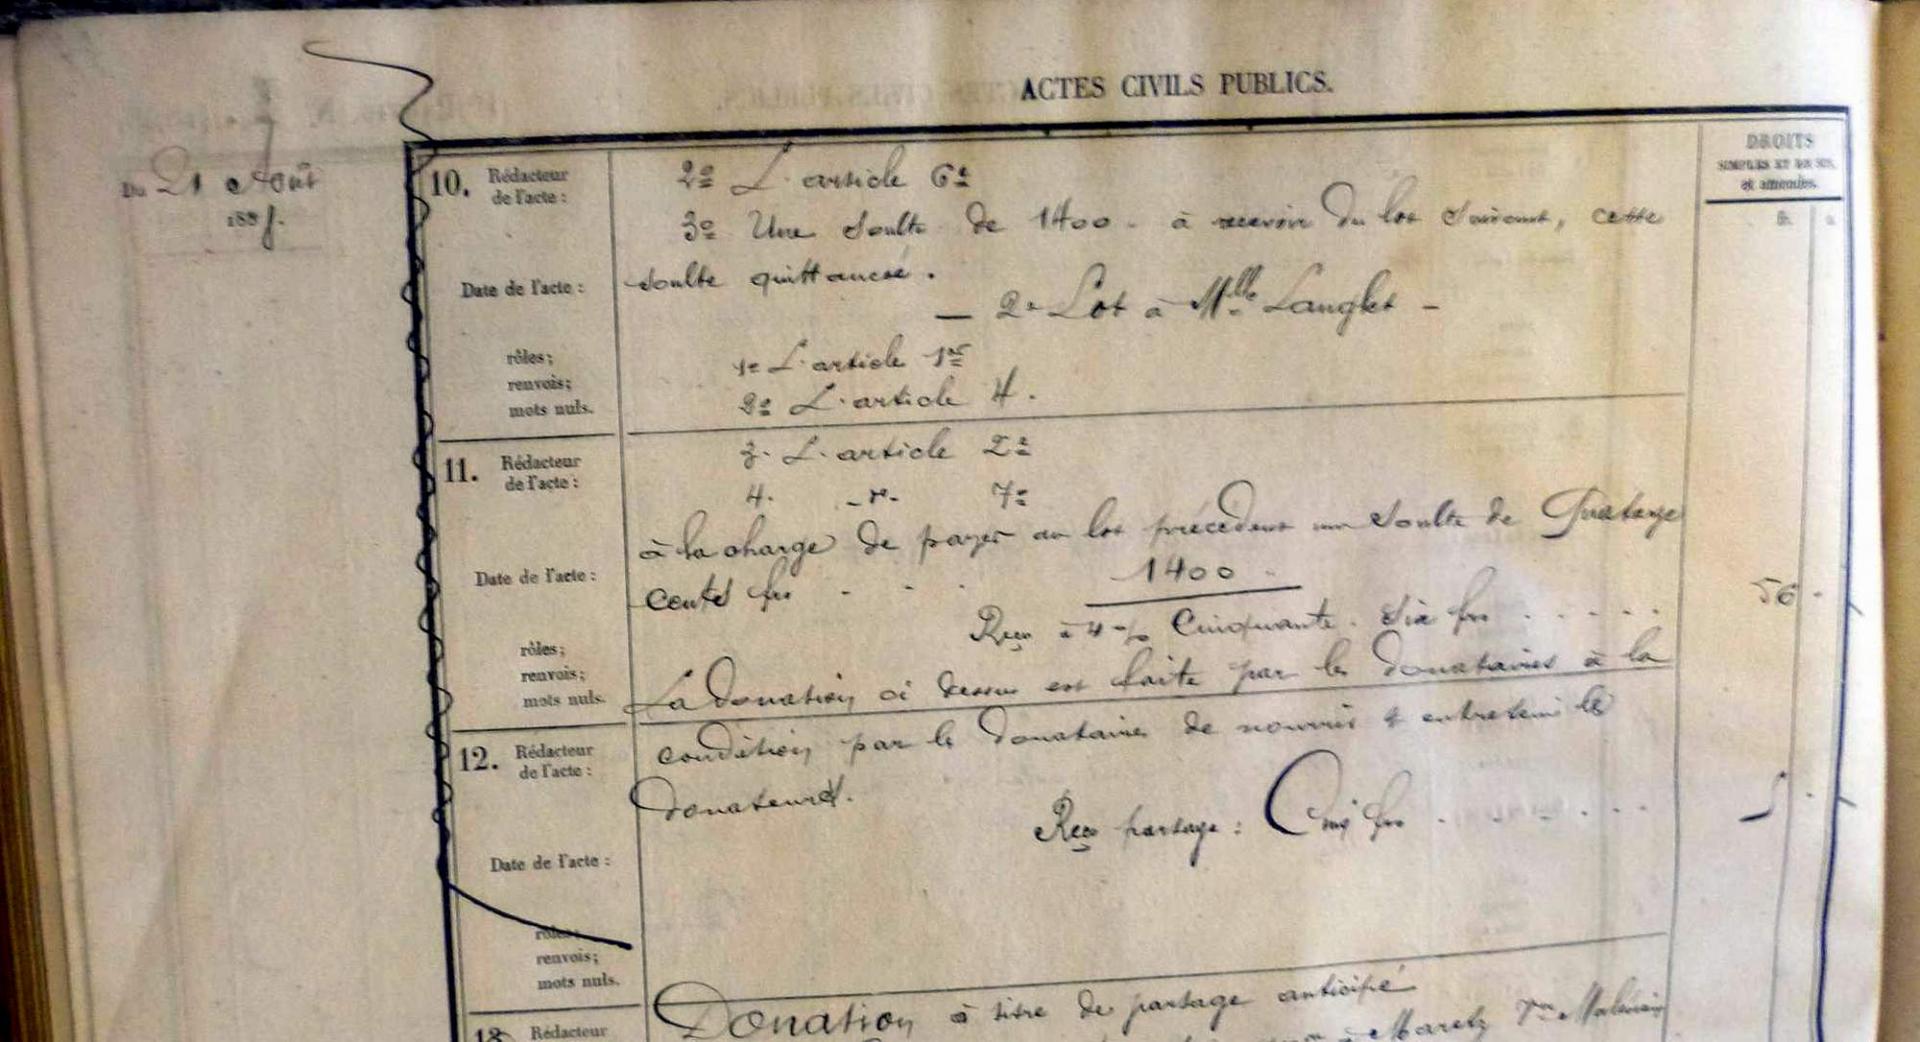 ACTES CIVILS PUBLICS.
DROITS
SIMPLES ET EN SUS,
et amendes.
fr. c.
Du 21 Août
188
10. Rédacteur
de l'acte :
2º L'article 6e
3º Une Soulte de 1400. à recevoir du lot Suivant, cette
Date de l'acte :
Soulte quittancée.
— 2e Lot à Mlle Langlet —
rôles;
1º L'article 1er
renvois;
2º L'article 4.
mots nuls.
11. Rédacteur
de l'acte :
3. L'article 2e
4. -r- 7e
à la charge de payer au lot précédent une Soulte de Quatorze
Date de l'acte :
Cents frs 1400
Reçu à 4 % Cinquante. Six frs . . . . . 56 .
rôles;
renvois;
mots nuls.
La donation ci dessus est faite par les donataires à la
condition par les donataires de nourrir & entretenir les
12. Rédacteur
de l'acte :
donateurs.
Reçu partage : Cinq frs . . . . . 5 .
Date de l'acte :
rôles;
renvois;
mots nuls.
Donation à titre de partage anticipé
13. Rédacteur
à Maretz